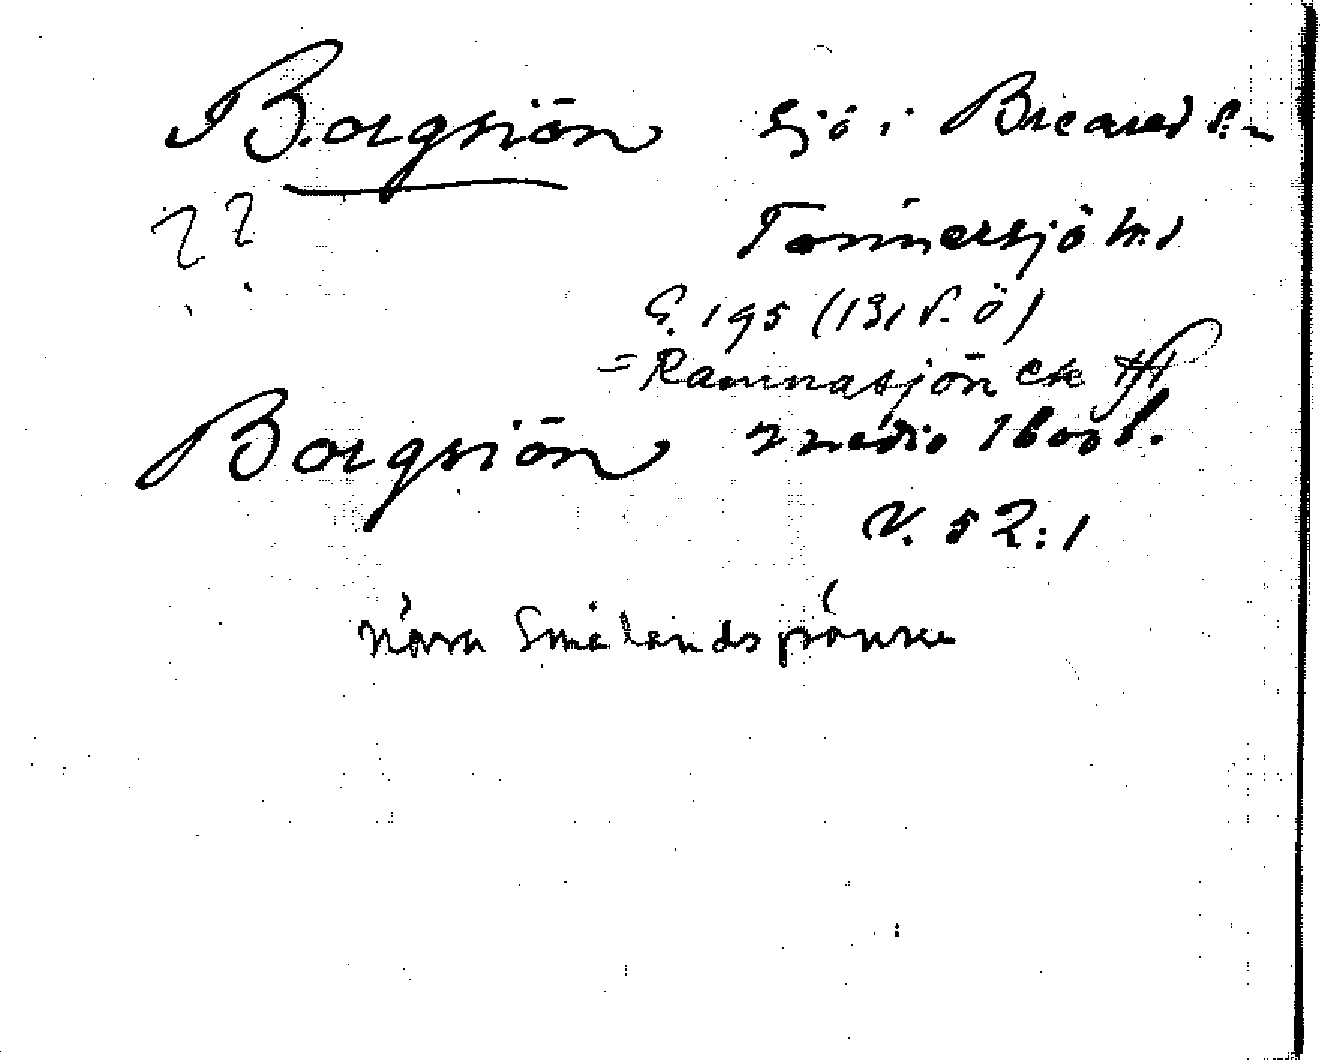 Borgsiön sjö i Breared sn
??
Tönnersjö hd
S. 195 (131 S.Ö)
= Ramnasjön ek
Borgsiön medio 1600t.
V. 52:1
nära Smålandsgränsen